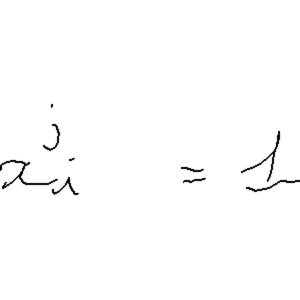 x_i^j = 1